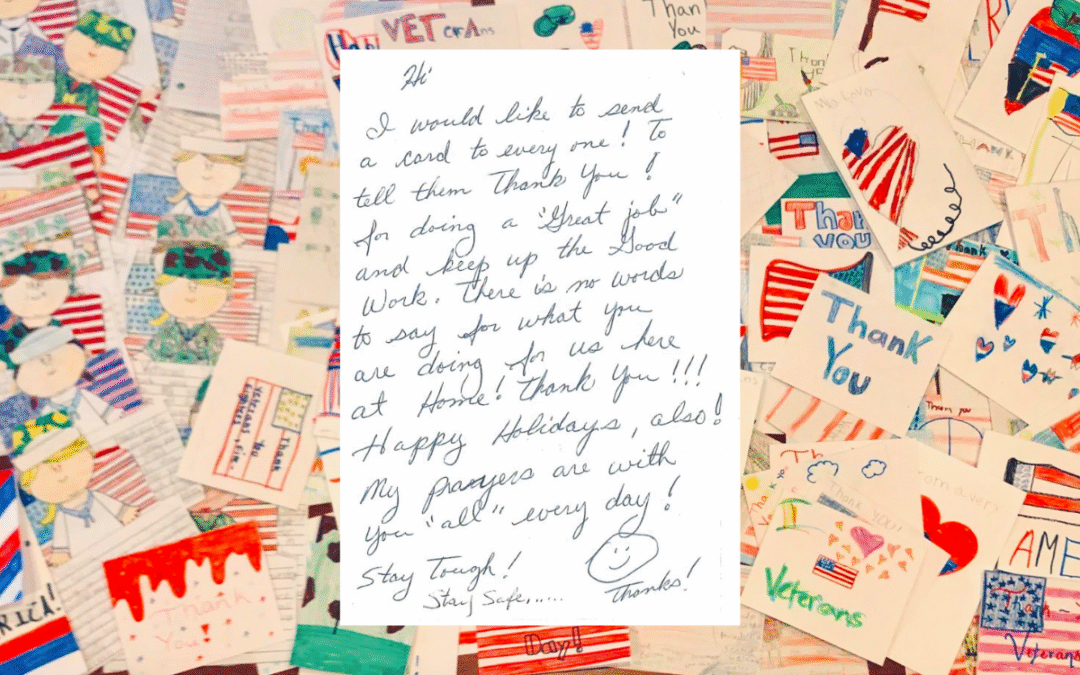 Hi
I would like to send
a card to every one! To
tell them Thank You!
for doing a "Great job"
and keep up the Good
Work. There is no words
to say for what you
are doing for us here
at Home! Thank You!!!
Happy Holidays, also!
My prayers are with
you "all" every day!
Stay Tough!
Stay Safe......
Thanks!
VETerAns
Thank
You
Thank
You
Thank
You
Thank
You
Veterans
Thank
You
Veterans
Day!